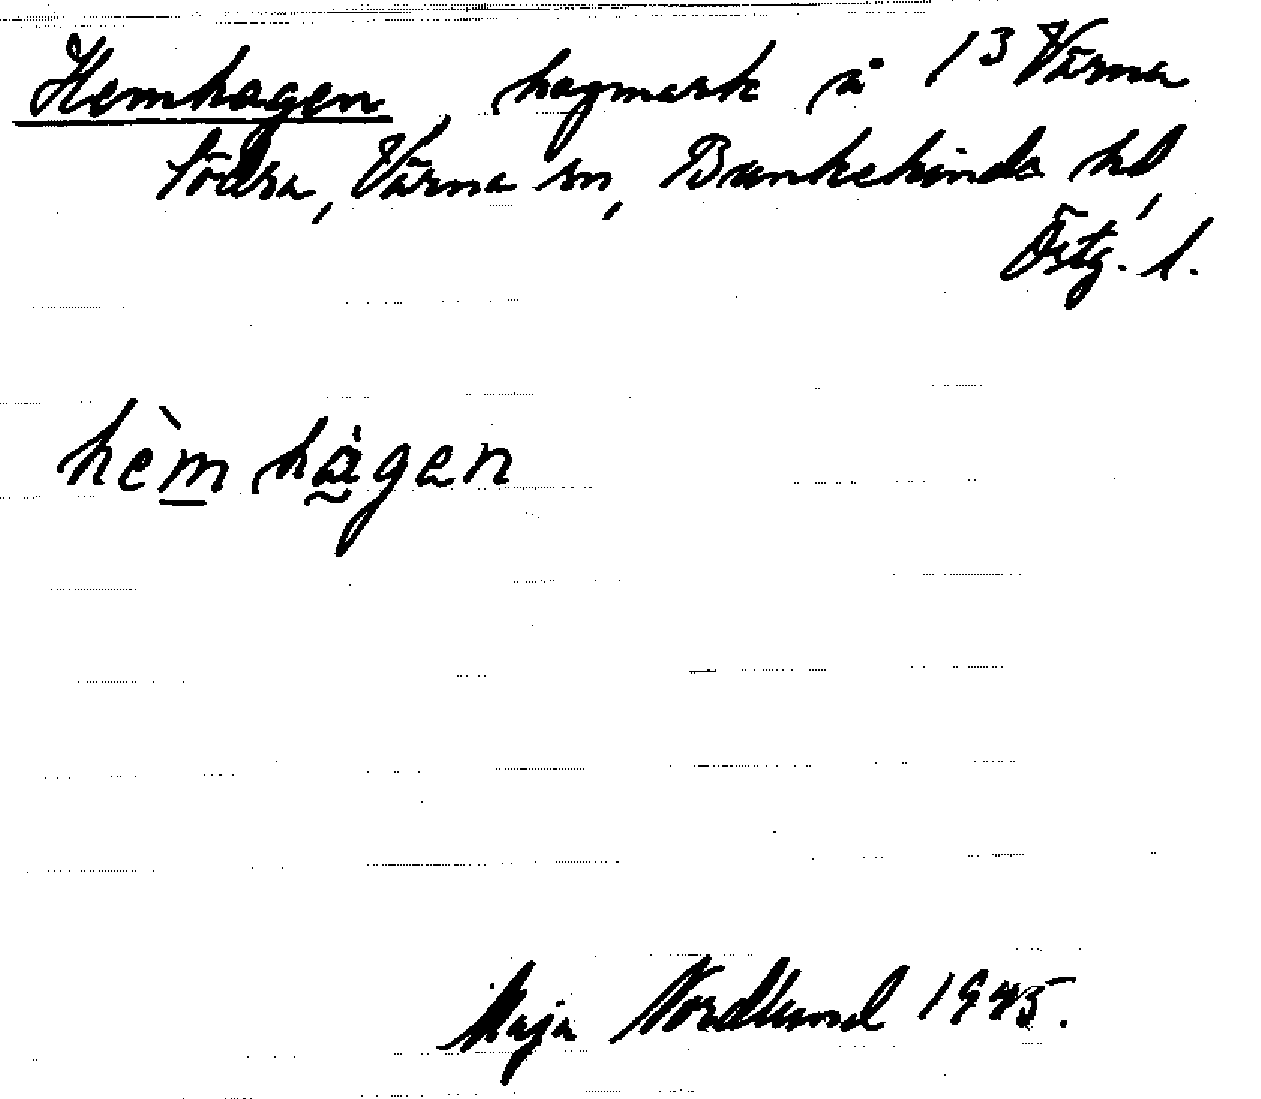 Hemhagen, hagmark å 1³ Värna
södra, Värna sn, Bankekinds hd,
Östg. l.
hèm hágen
Maja Nordlund 1945.